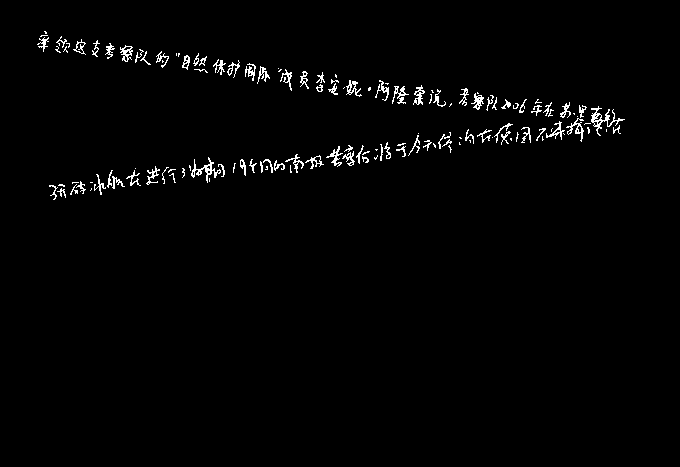 率领这支考察队的“自然保护国际”成员李安妮·阿隆索说,考察队2006年在苏里南的
号破冰船在进行了为期19个月的南极考察后将于今天停泊在德国不来梅